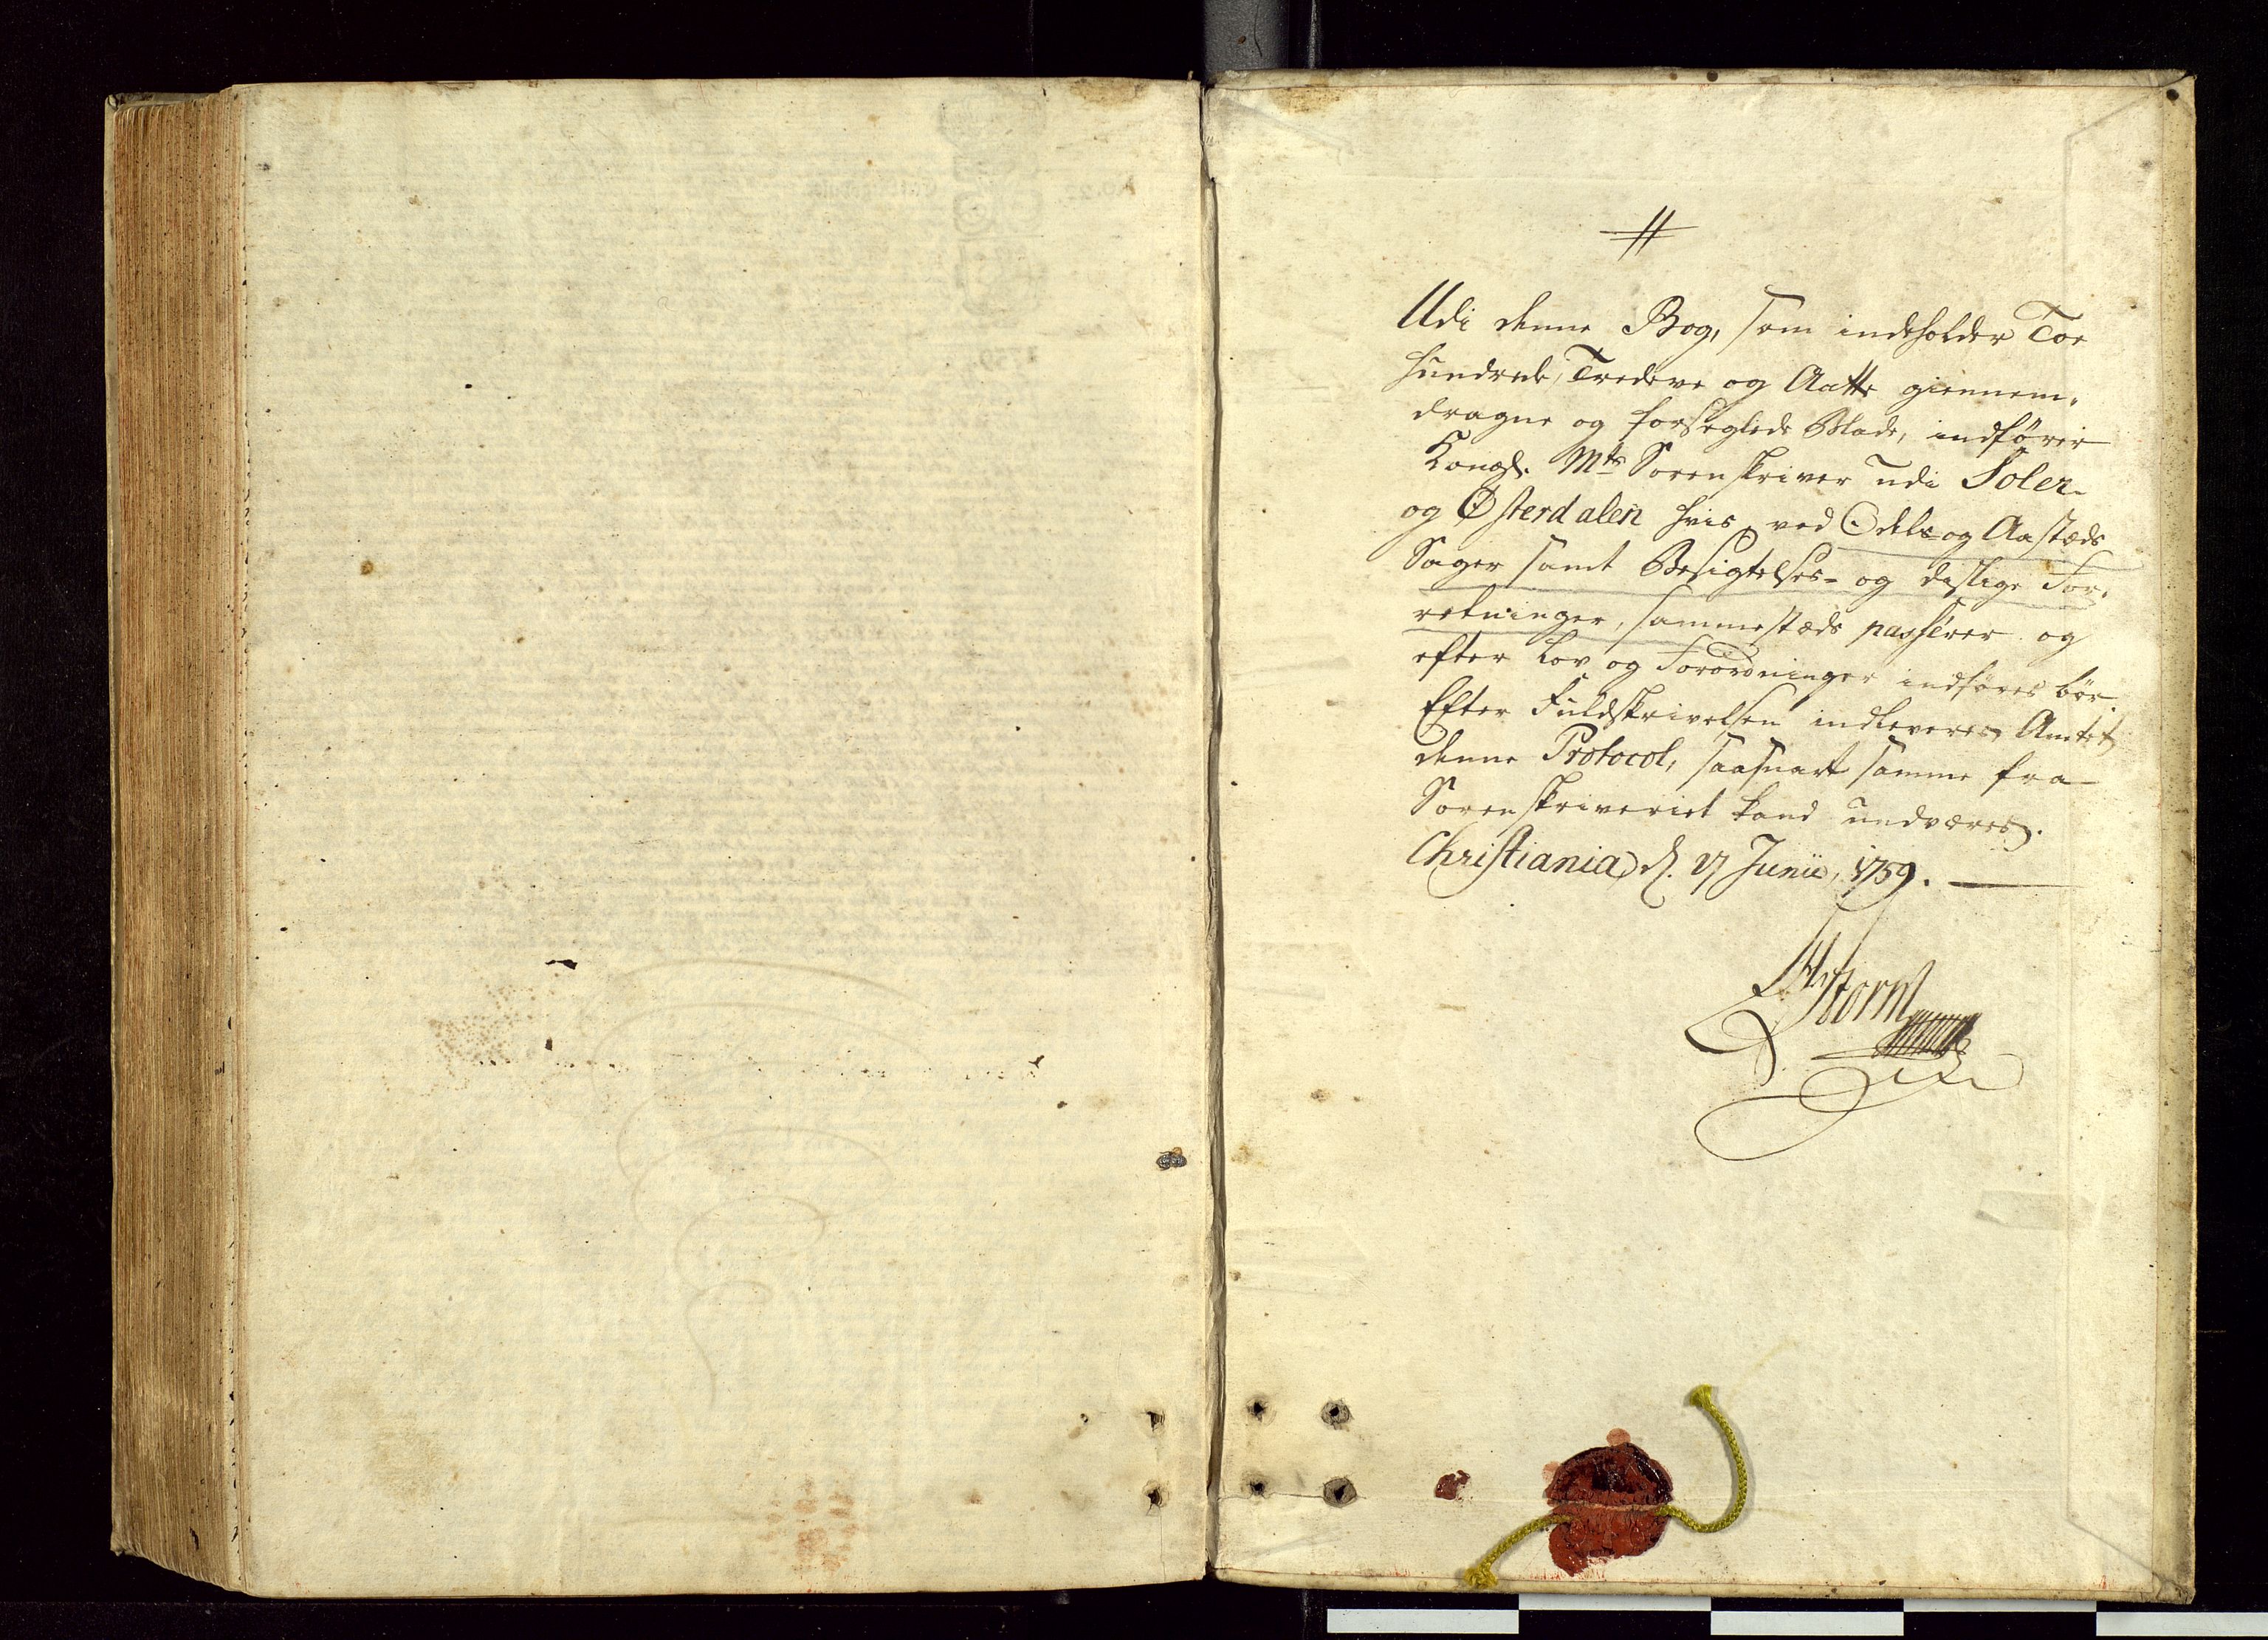 Udi denne Bog, som indeholder Toe
hundrede, Tredeve og Aatte giennem-
dragne og forseglede Blade, indfører
Kongl. Mts Sorenskriver udi Soløer-
og Østerdalen hvis, ved Odels- og Aastæds
Sager samt Besigtelses- og deslige For-
retninger, sammestæds passérer og
efter Lov og Forordninger indføres bør.
Efter Fuldskrivelsen indleveres Amtet
denne Protocol, saasnart samme fra
Sorenskriveriet kand undværes.
Christiania d. 17 Junii, 1759.
Storm